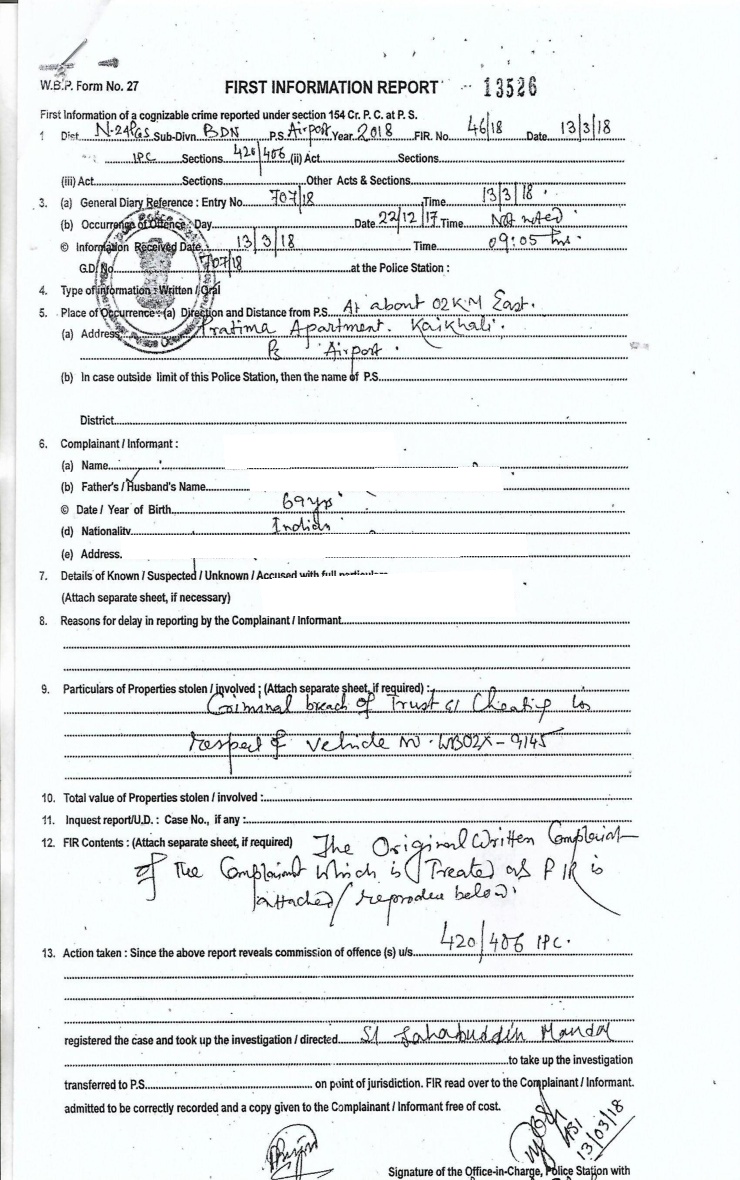 W.B.P. Form No. 27 FIRST INFORMATION REPORT 13526
First Information of a cognizable crime reported under section 154 Cr. P. C. at P. S.
1 Dist. N-24PGS Sub-Divn. BDN P.S. Airport Year 2018 FIR. No. 46/18 Date 13/3/18
IPC Sections 420/406 (ii) Act Sections
(iii) Act Sections Other Acts & Sections
3. (a) General Diary Reference : Entry No. 707/18 Time 13/3/18
(b) Occurrence of Offence : Day Date 22/12/17 Time Not noted
© Information Received Date 13/3/18 Time 09:05 hrs
G.D. No. 707/18 at the Police Station :
4. Type of information : Written / Oral
5. Place of Occurrence : (a) Direction and Distance from P.S. At about 02 KM East.
(a) Address Pratima Apartment. Kaikhali.
PS Airport.
(b) In case outside limit of this Police Station, then the name of P.S.
District
6. Complainant / Informant :
(a) Name
(b) Father's / Husband's Name
© Date / Year of Birth 69 yrs
(d) Nationality Indian
(e) Address.
7. Details of Known / Suspected / Unknown / Accused with full particulars
(Attach separate sheet, if necessary)
8. Reasons for delay in reporting by the Complainant / Informant
9. Particulars of Properties stolen / involved ; (Attach separate sheet, if required) :
Criminal breach of Trust & Cheating in
respect of vehicle no. WB02X-9145
10. Total value of Properties stolen / involved :
11. Inquest report/U.D. : Case No., if any :
12. FIR Contents : (Attach separate sheet, if required) The Original Written Complaint
of the Complaint which is Treated as FIR is
attached/ reproduce below.
13. Action taken : Since the above report reveals commission of offence (s) u/s 420/406 IPC.
registered the case and took up the investigation / directed SI Sahabuddin Mondal
to take up the investigation
transferred to P.S. on point of jurisdiction. FIR read over to the Complainant / Informant.
admitted to be correctly recorded and a copy given to the Complainant / Informant free of cost.
ASI
13/03/18
Signature of the Office-in-Charge, Police Station with